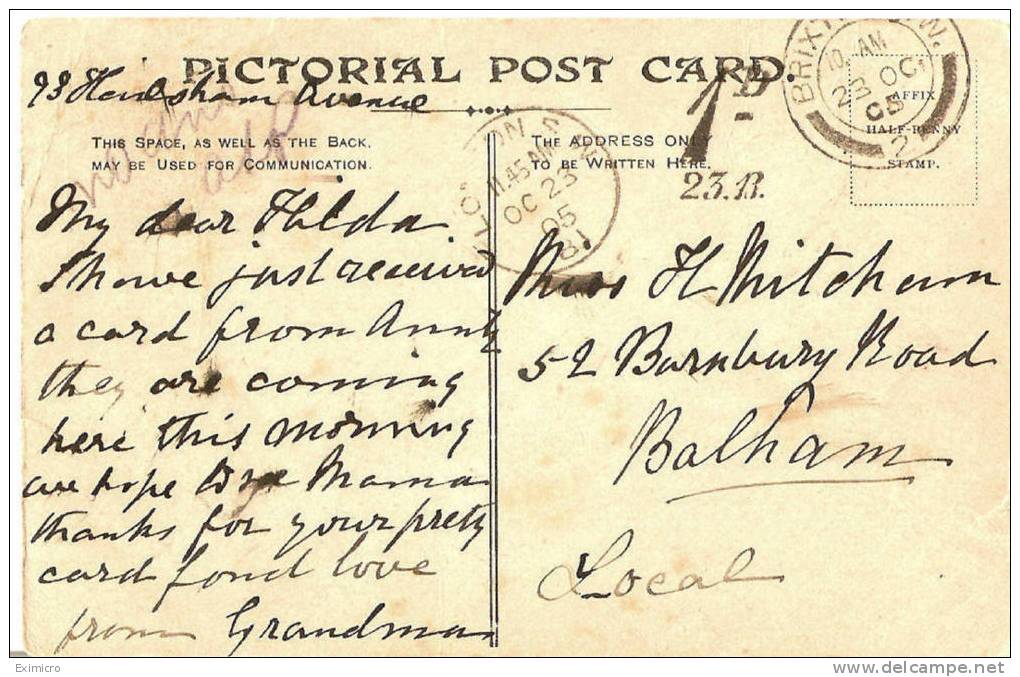 PICTORIAL POST CARD.
93 Avenue
THIS SPACE, AS WELL AS THE BACK,
MAY BE USED FOR COMMUNICATION.
My dear Hilda
I have just received
a card from Aunty
they are coming
here this morning
hope Mama
thanks for your prety
card fond love
from Grandma
THE ADDRESS ONLY
TO BE WRITTEN HERE.
1D
23.B.
BRIXTON S.W.
10. AM
23 OC
05
2
AFFIX
HALF-PENNY
STAMP.
11.45 AM
OC 23
05
81
Miss H Mitcham
52 Barnbury Road
Balham
Local
Eximicro
delcampe.net